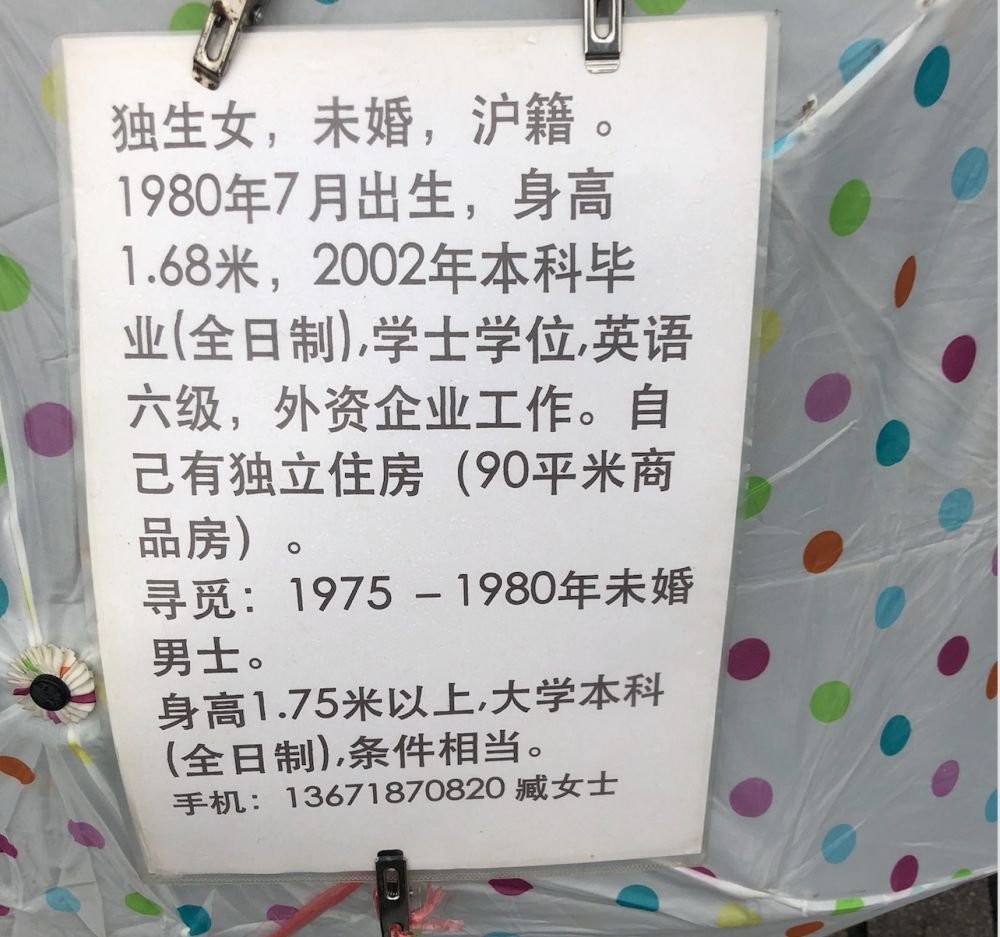 独生女，未婚，沪籍。
1980年7月出生，身高
1.68米，2002年本科毕
业(全日制),学士学位,英语
六级，外资企业工作。自
己有独立住房（90平米商
品房）。
寻觅：1975 –1980年未婚
男士。
身高1.75米以上,大学本科
(全日制),条件相当。
手机：13671870820 臧女士